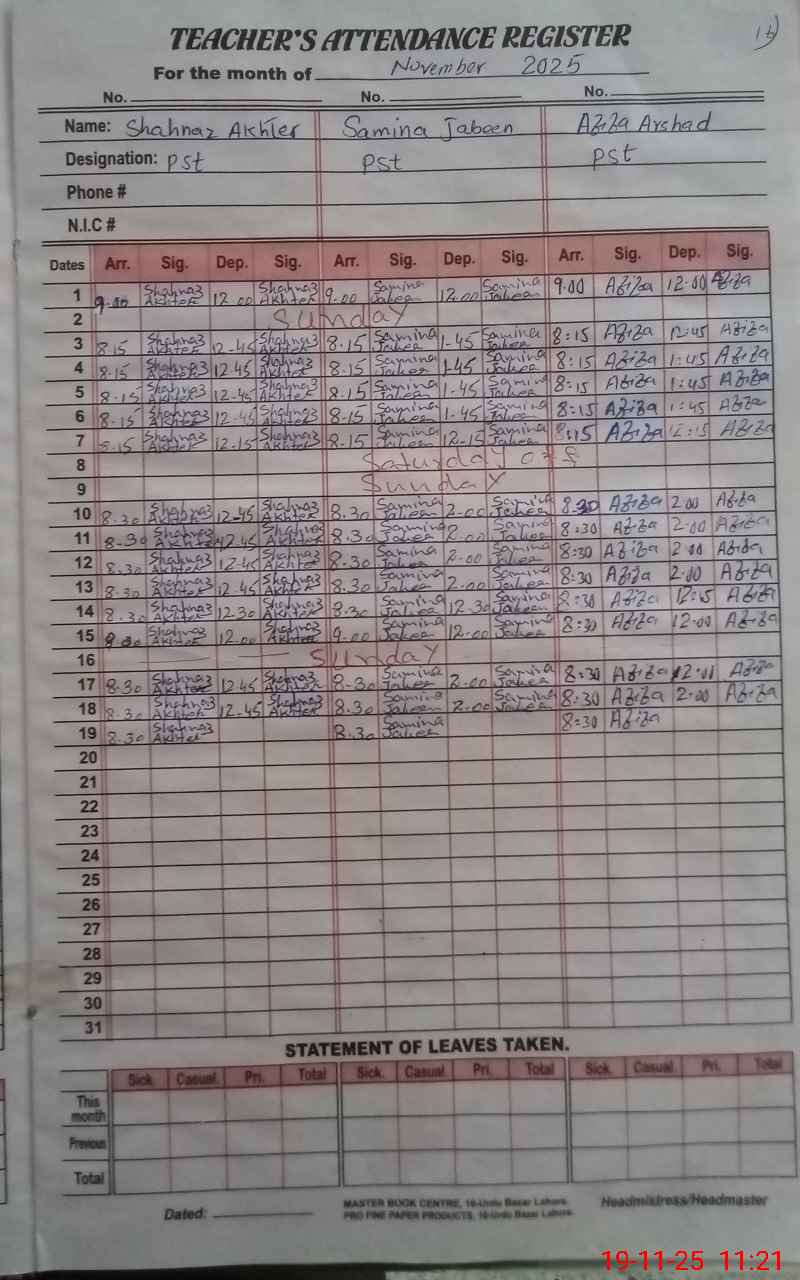 15)
TEACHER'S ATTENDANCE REGISTER
For the month of November 2025
No. No. No.
Name: Shahnaz Akhter Samina Jabeen Aziza Arshad
Designation: PST PST PST
Phone #
N.I.C #
Dates Arr. Sig. Dep. Sig. Arr. Sig. Dep. Sig. Arr. Sig. Dep. Sig.
1 9.00 Shahnaz Akhter 12.00 Shahnaz Akhter 9.00 Samina Jabeen 12.00 Samina Jabeen 9.00 Aziza 12.00 Aziza
2 Sunday
3 8.15 Shahnaz Akhter 12-45 Shahnaz Akhter 8.15 Samina Jabeen 1-45 Samina Jabeen 8:15 Aziza 12:45 Aziza
4 8.15 Shahnaz Akhter 12.45 Shahnaz Akhter 8.15 Samina Jabeen 1-45 Samina Jabeen 8:15 Aziza 1:45 Aziza
5 8.15 Shahnaz Akhter 12-45 Shahnaz Akhter 8.15 Samina Jabeen 1-45 Samina Jabeen 8:15 Aziza 1:45 Aziza
6 8-15 Shahnaz Akhter 12-45 Shahnaz Akhter 8-15 Samina Jabeen 1-45 Samina Jabeen 8:15 Aziza 1:45 Aziza
7 8.15 Shahnaz Akhter 12-15 Shahnaz Akhter 8-15 Samina Jabeen 12-15 Samina Jabeen 8:15 Aziza 12:15 Aziza
8 Saturday off
9 Sunday
10 8.30 Shahnaz Akhter 12-45 Shahnaz Akhter 8.30 Samina Jabeen 2-00 Samina Jabeen 8.30 Aziza 2.00 Aziza
11 8-30 Shahnaz Akhter 12.45 Shahnaz Akhter 8.30 Samina Jabeen 2.00 Samina Jabeen 8:30 Aziza 2.00 Aziza
12 8.30 Shahnaz Akhter 12-45 Shahnaz Akhter 8.30 Samina Jabeen 2.00 Samina Jabeen 8:30 Aziza 2.00 Aziza
13 8.30 Shahnaz Akhter 12.45 Shahnaz Akhter 8.30 Samina Jabeen 2.00 Samina Jabeen 8:30 Aziza 2.00 Aziza
14 8.30 Shahnaz Akhter 12.30 Shahnaz Akhter 8.30 Samina Jabeen 12.30 Samina Jabeen 8:30 Aziza Aziza
15 Shahnaz Akhter 12.00 Shahnaz Akhter 9.00 Samina Jabeen 12.00 Samina Jabeen 8:30 Aziza 12.00 Aziza
16 Sunday
17 8.30 Shahnaz Akhter 12.45 Shahnaz Akhter 8-30 Samina Jabeen 2.00 Samina Jabeen 8:30 Aziza Aziza
18 8.30 Shahnaz Akhter 12-45 Shahnaz Akhter 8.30 Samina Jabeen 2.00 Samina Jabeen 8:30 Aziza 2.00 Aziza
19 8.30 Shahnaz Akhter 8.30 Samina Jabeen 8:30 Aziza
20
21
22
23
24
25
26
27
28
29
30
31
STATEMENT OF LEAVES TAKEN.
Sick. Casual. Pri. Total Sick. Casual. Pri. Total Sick. Casual. Pri. Total
This month
Previous
Total
Dated:
MASTER BOOK CENTRE, 16-Urdu Bazar Lahore.
PRO FINE PAPER PRODUCTS, 16-Urdu Bazar Lahore.
Headmistress/Headmaster
19-11-25 11:21